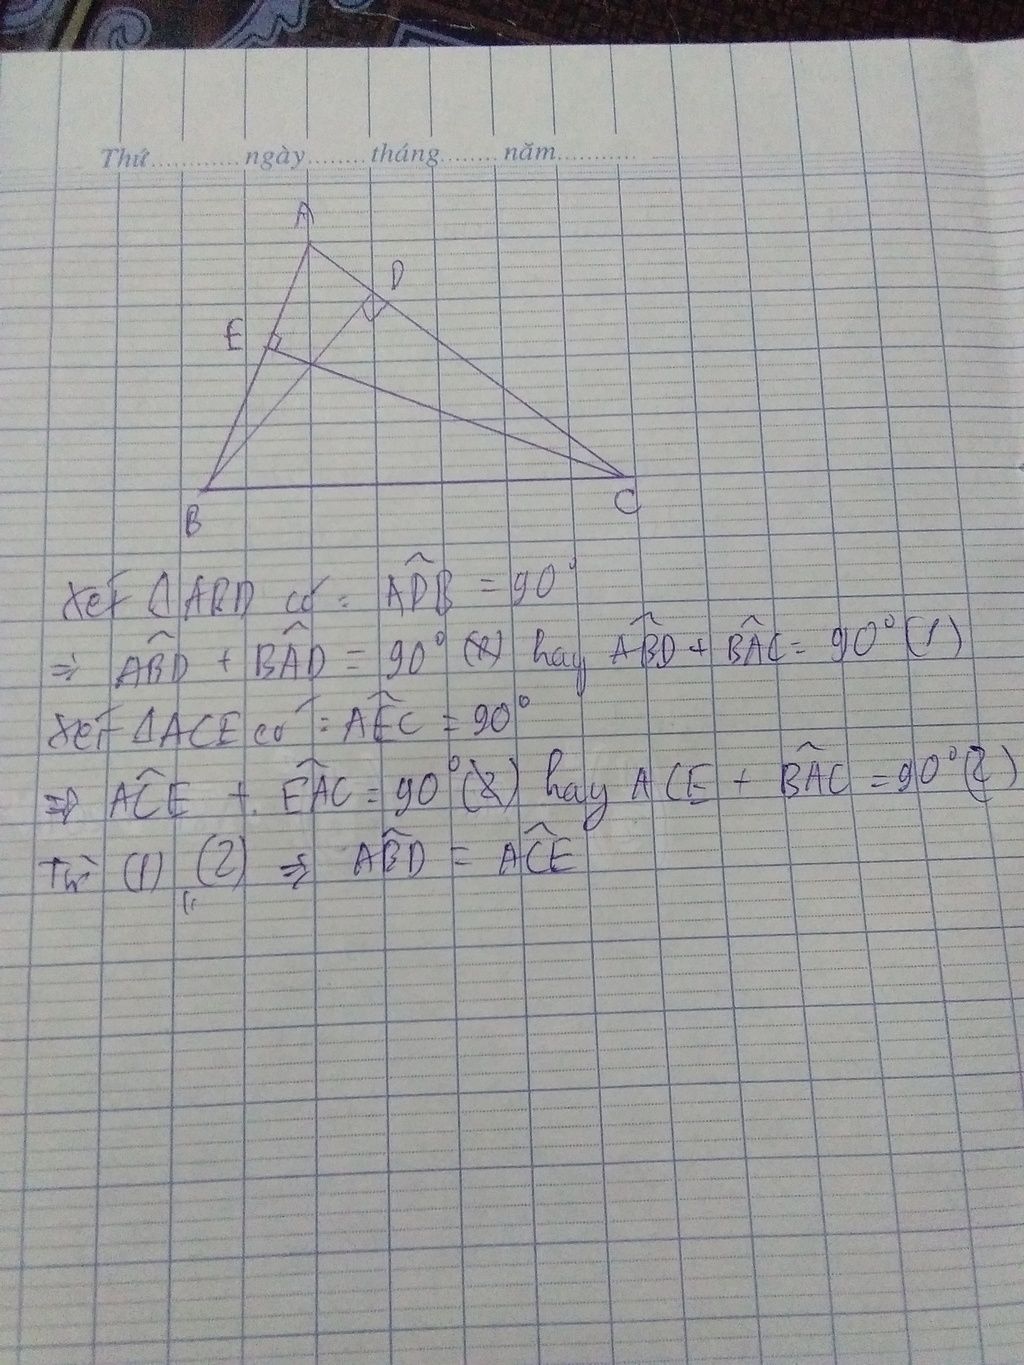 Thứ............ngày........tháng........năm...........
A
D
E
B
C
Xét ΔABD có: ADB̂ = 90°
⇒ ABD̂ + BAD̂ = 90° hay ABD̂ + BAĈ = 90° (1)
Xét ΔACE có: AEĈ = 90°
⇒ ACÊ + EAĈ = 90° hay ACE + BAĈ = 90° (2)
Từ (1) (2) ⇒ ABD̂ = ACÊ